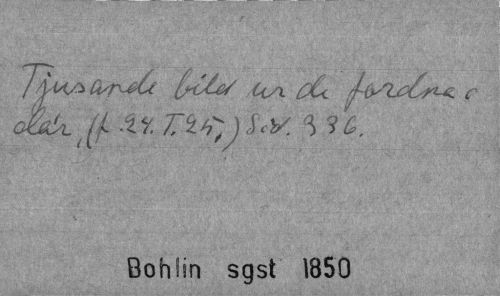 Tjusande bild ur de fordna
dar, (t. 24. T. 25,) Sid. 336.
Bohlin sgst 1850